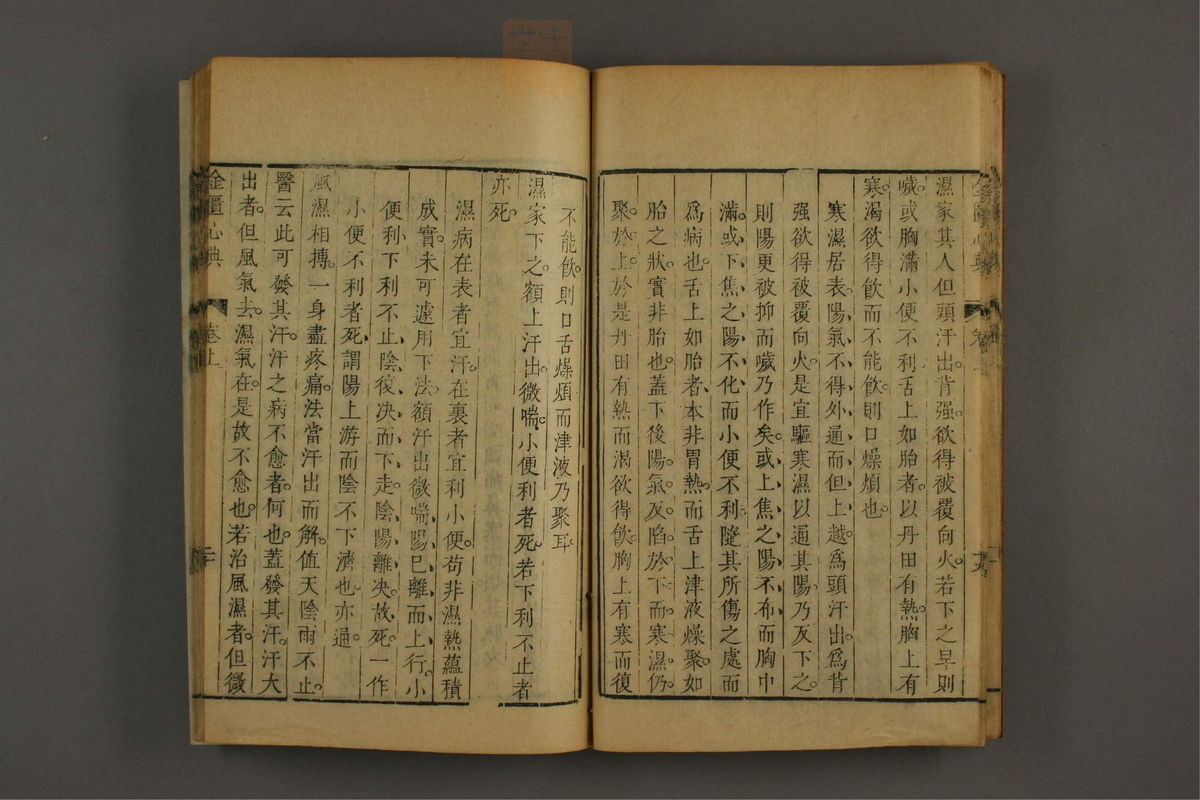 濕家其人但頭汗出背强欲得被覆向火若下之早則
噦或胸滿小便不利舌上如胎者以丹田有熱胸上有
寒渴欲得飮而不能飮則口燥煩也
寒濕居表陽氣不得外通而但上越爲頭汗出爲背
强欲得被覆向火是宜驅寒濕以通其陽乃反下之
則陽更被抑而噦乃作矣或上焦之陽不布而胸中
滿或下焦之陽不化而小便不利隨其所傷之處而
爲病也舌上如胎者本非胃熱而舌上津液燥聚如
胎之狀實非胎也蓋下後陽氣反陷於下而寒濕仍
聚於上於是丹田有熱而渴欲得飮胸上有寒而復
不能飮則口舌燥煩而津液乃聚耳
濕家下之額上汗出微喘小便利者死若下利不止者
亦死
濕病在表者宜汗在裏者宜利小便苟非濕熱蘊積
成實未可遽用下法額汗出微喘陽已離而上行小
便利下利不止陰復决而下走陰陽離决故死一作
小便不利者死謂陽上游而陰不下濟也亦通
風濕相搏一身盡疼痛法當汗出而解値天陰雨不止
醫云此可發其汗汗之病不愈者何也蓋發其汗汗大
出者但風氣去濕氣在是故不愈也若治風濕者但微
金匱心典 卷上 二十